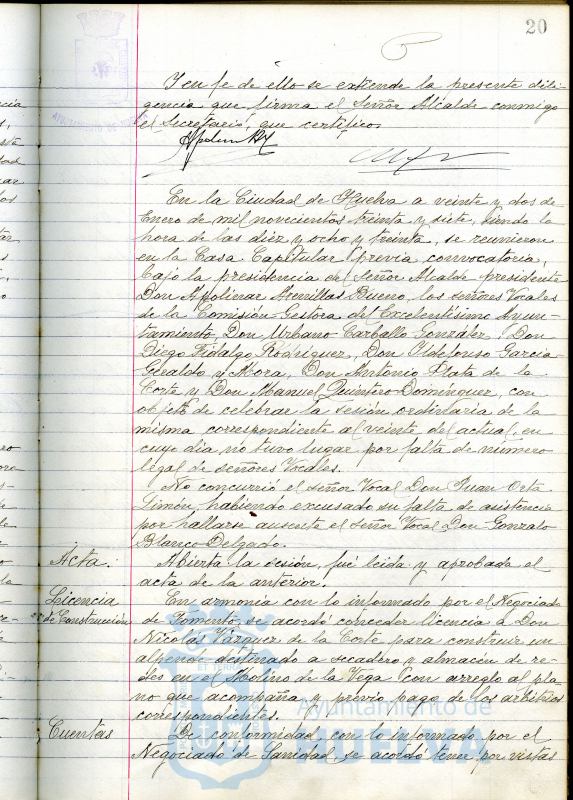 20
Y en fe de ello se extiende la presente dili-
gencia que firma el Señor Alcalde conmigo
el Secretario, que certifico.
En la Ciudad de Huelva a veinte y dos de
Enero de mil novecientos treinta y siete, siendo la
hora de las diez y ocho y treinta, se reunieron
en la Casa Capitular previa convocatoria,
bajo la presidencia del Señor Alcalde presidente
Don Apolinar Arenillas Bueno, los señores Vocales
de la Comisión Gestora del Excelentísimo Ayun-
tamiento Don Urbano Carballo González, Don
Diego Fidalgo Rodríguez, Don Ildefonso García
Geraldo y Mora, Don Antonio Plata de la
Corte y Don Manuel Quintero Domínguez, con
objeto de celebrar la sesión ordinaria de la
misma correspondiente al veinte del actual, en
cuyo dia no tuvo lugar por falta de número
legal de señores Vocales.
No concurrió el señor Vocal Don Juan Orta
Limón, habiendo excusado su falta de asistencia
por hallarse ausente el señor Vocal Don Gonzalo
Blanco Delgado.
Acta. Abierta la sesión, fué leida y aprobada el
acta de la anterior.
Licencia En armonia con lo informado por el Negociado
de Construcción de Fomento, se acordó conceder licencia a Don
Nicolás Vázquez de la Corte para construir un
alpende destinado a secadero y almacén de re-
des en el Molino de la Vega con arreglo al pla-
no que acompaña y previo pago de los arbitrios
correspondientes.
Cuentas De conformidad con lo informado por el
Negociado de Sanidad, se acordó tener por vistas
Ayuntamiento de
HUELVA